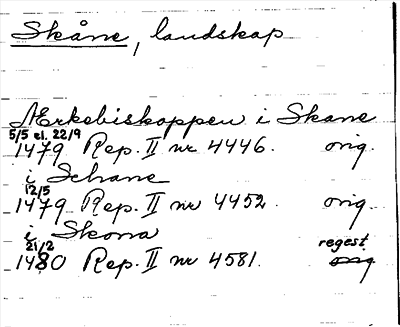 Skåne, landskap
Ærkebiskoppen i Skane
5/5 el. 22/9
1479 Rep. II nr 4446. orig.
i Schane
12/5
1479 Rep. II nr 4452. orig.
i Skona
21/2 regest
1480 Rep. II nr 4581. orig